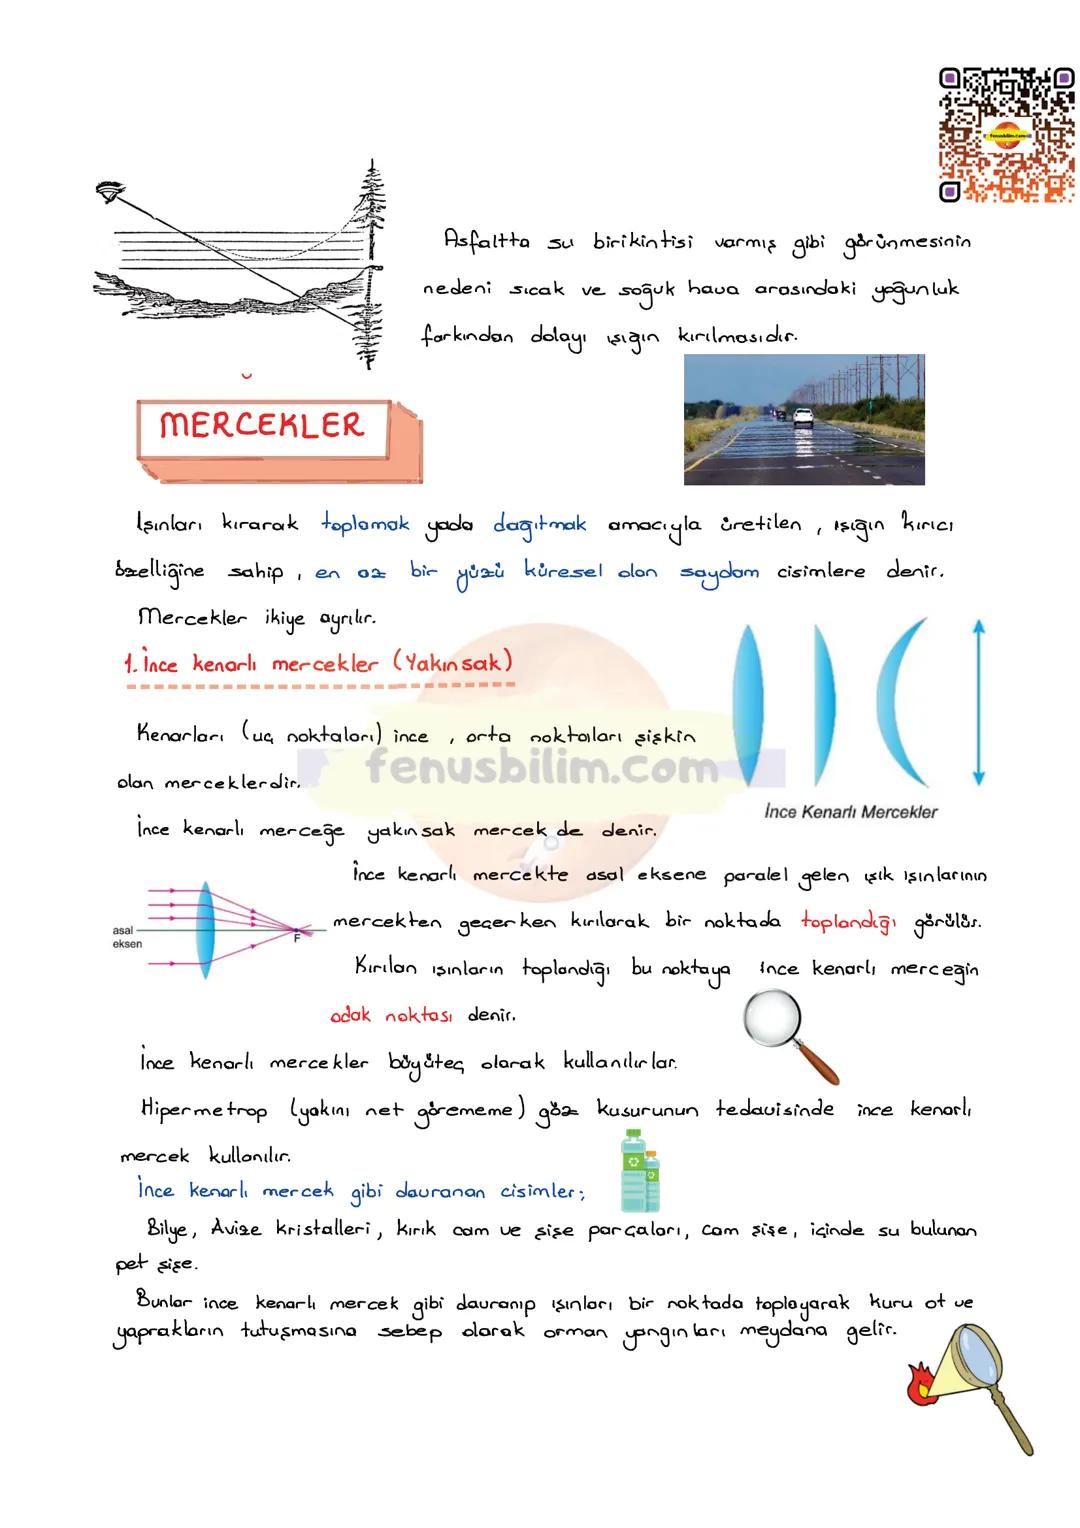 fenusbilim.com
Asfaltta su birikintisi varmış gibi görünmesinin
nedeni sıcak ve soğuk hava arasındaki yoğunluk
farkından dolayı ışığın kırılmasıdır.
MERCEKLER
Işınları kırarak toplamak yada dağıtmak amacıyla üretilen, ışığın kırıcı
özelliğine sahip, en az bir yüzü küresel olan saydam cisimlere denir.
Mercekler ikiye ayrılır.
1. İnce kenarlı mercekler (Yakınsak)
Kenarları (uç noktaları) ince, orta noktaları şişkin
olan merceklerdir.
fenusbilim.com
İnce Kenarlı Mercekler
İnce kenarlı merceğe yakınsak mercek de denir.
İnce kenarlı mercekte asal eksene paralel gelen ışık ışınlarının
mercekten geçerken kırılarak bir noktada toplandığı görülür.
asal
eksen
F
Kırılan ışınların toplandığı bu noktaya ince kenarlı merceğin
odak noktası denir.
İnce kenarlı mercekler büyüteç olarak kullanılırlar.
Hipermetrop (yakını net görememe) göz kusurunun tedavisinde ince kenarlı
mercek kullanılır.
İnce kenarlı mercek gibi davranan cisimler;
Bilye, Avize kristalleri, kırık cam ve şişe parçaları, cam şişe, içinde su bulunan
pet şişe.
Bunlar ince kenarlı mercek gibi davranıp ışınları bir noktada toplayarak kuru ot ve
yaprakların tutuşmasına sebep olarak orman yangınları meydana gelir.